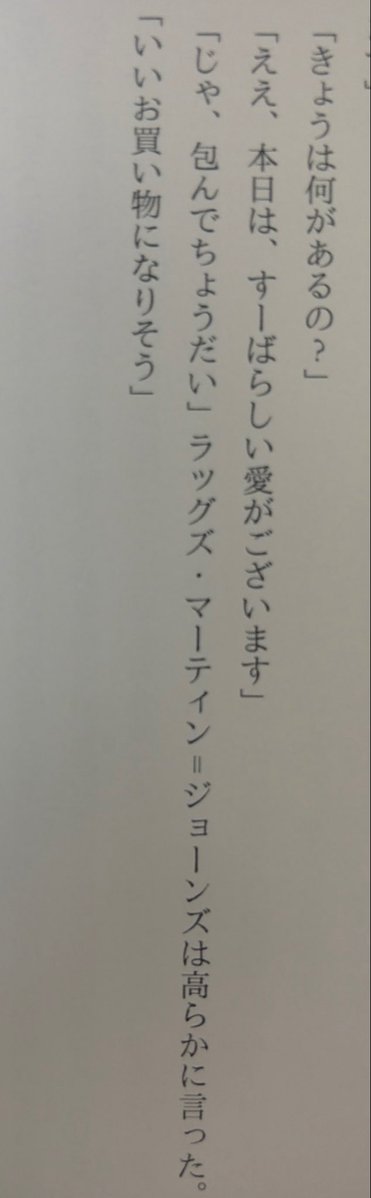 「きょうは何があるの？」
「ええ、本日は、すーばらしい愛がございます」
「じゃ、包んでちょうだい」ラッグズ・マーティン＝ジョーンズは高らかに言った。
「いいお買い物になりそう」